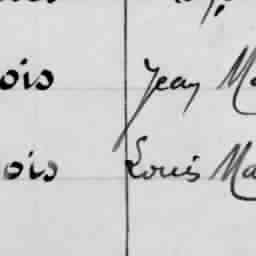 ois Jean Ma
ois Louis Ma